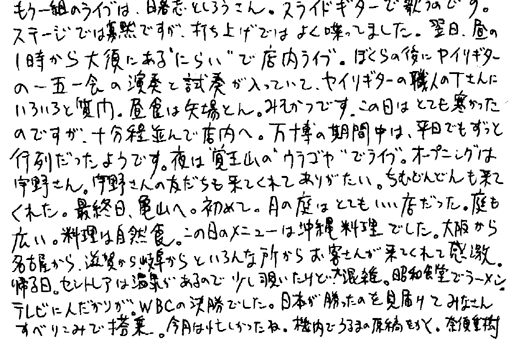 もう一組のライブは、日暑志としろうさん。スライドギターで歌うのです。
ステージでは寡黙ですが、打ち上げではよく喋ってました。翌日、昼の
1時から大須にある"にらい"で店内ライブ。ぼくらの後にヤイリギター
の一五一会の演奏と試奏が入っていて、ヤイリギターの職人のTさんに
いろいろと質問。昼食は矢場とん。みそかつです。この日はとても寒かった
のですが、十分程並んで店内へ。万博の期間中は、平日でもずっと
行列だったようです。夜は覚王山の"ウラゴヤ"でライブ。オープニングは
宇野さん。宇野さんの友だちも来てくれてありがたい。ちむどんどんも来て
くれた。最終日、亀山へ。初めて。月の庭はとてもいい店だった。庭も
広い。料理は自然食。この日のメニューは沖縄料理でした。大阪から
名古屋から、滋賀から岐阜からといろんな所からお客さんが来てくれて感激。
帰る日。セントレアは温泉があるので少し覗いたけど大混雑。昭和食堂でラーメン。
テレビに人だかりが。WBCの決勝でした。日本が勝ったのを見届けてみなさん
すべりこみで搭乗。今月は忙しかったね。機内でうるまの原稿をかく。奈須重樹